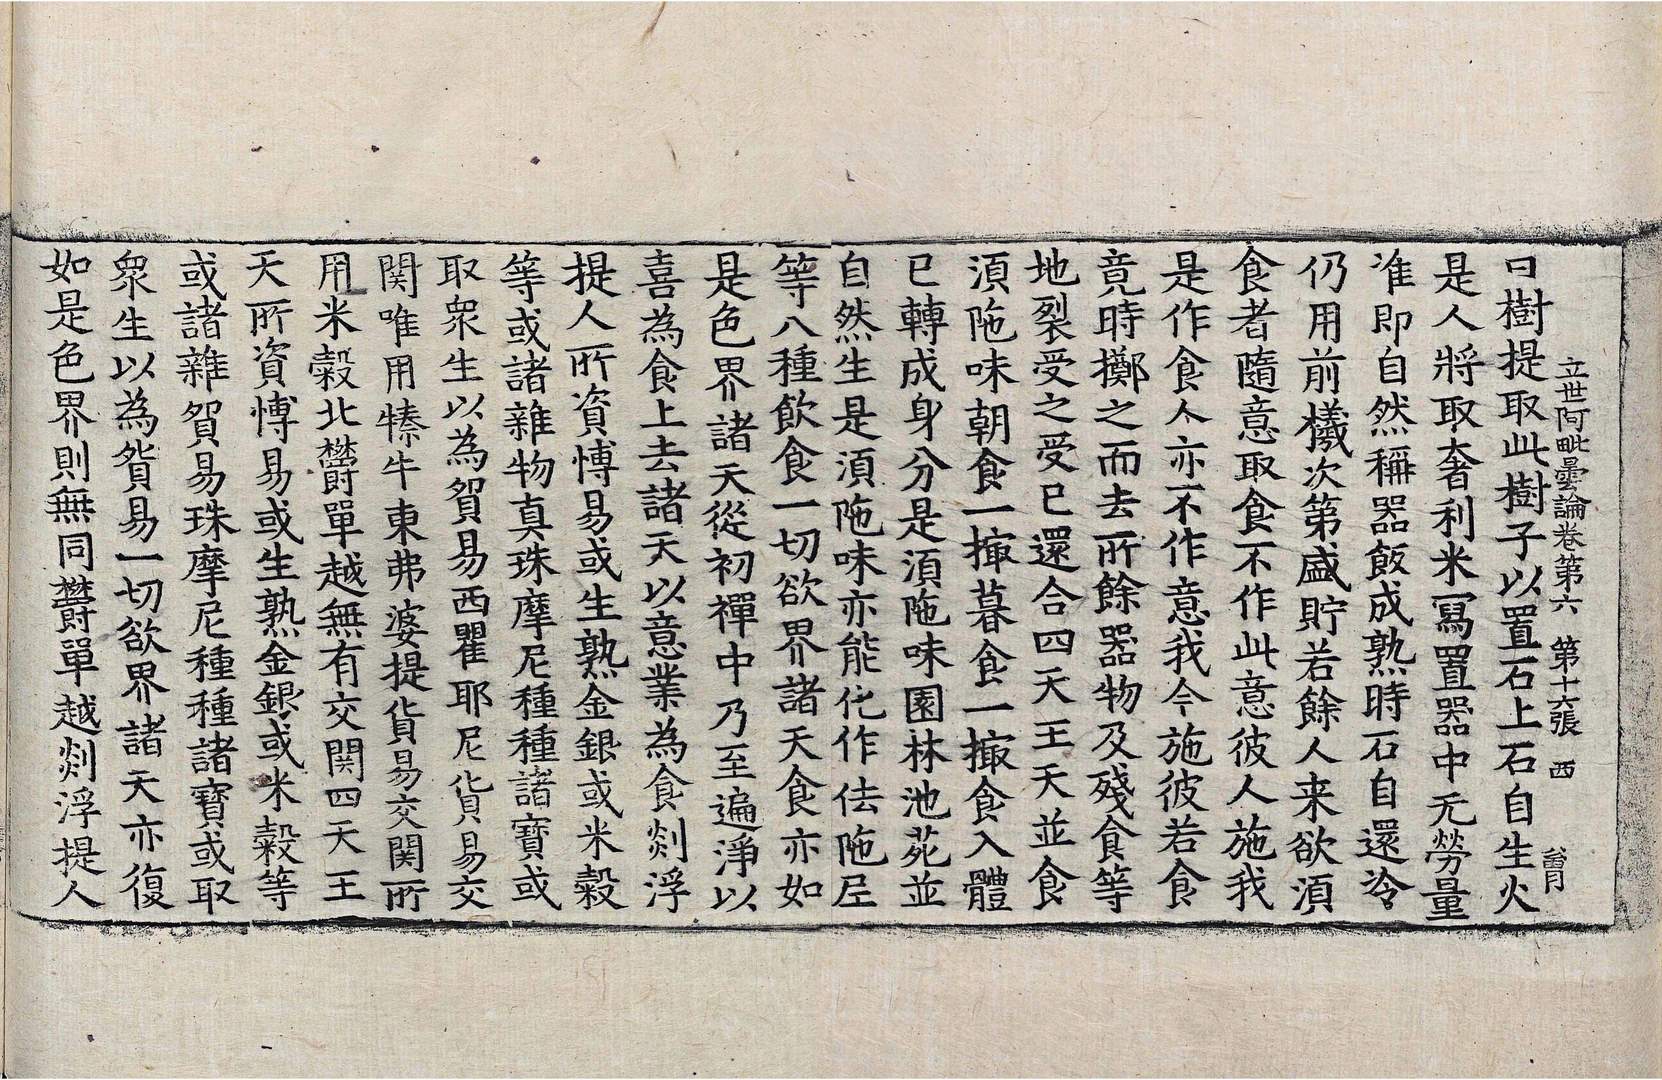 立世阿毗曇論卷第六 第十六張 西
曰樹提取此樹子以置石上石自生火
是人將取奢利米寫置器中无勞量
准即自然稱器飯成熟時石自還冷
仍用前檥次第盛貯若餘人来欲湏
食者隨意取食不作此意彼人施我
是作食人亦不作意我今施彼若食
竟時擲之而去所餘器物及殘食等
地裂受之受已還合四天王天並食
湏陁味朝食一撮暮食一撮食入體
已轉成身分是湏陁味園林池苑並
自然生是湏陁味亦能化作佉陁尼
等八種飲食一切欲界諸天食亦如
是色界諸天從初禪中乃至遍淨以
喜為食上去諸天以意業為食剡浮
提人所資愽易或生熟金銀或米穀
等或諸雜物真珠摩尼種種諸寶或
取衆生以為貿易西瞿耶尼貨易交
関唯用㹛牛東弗婆提貨易交関所
用米穀北欝單越無有交関四天王
天所資愽易或生熟金銀或米穀等
或諸雜貿易珠摩尼種種諸寶或取
衆生以為貨易一切欲界諸天亦復
如是色界則無同欝單越剡浮提人